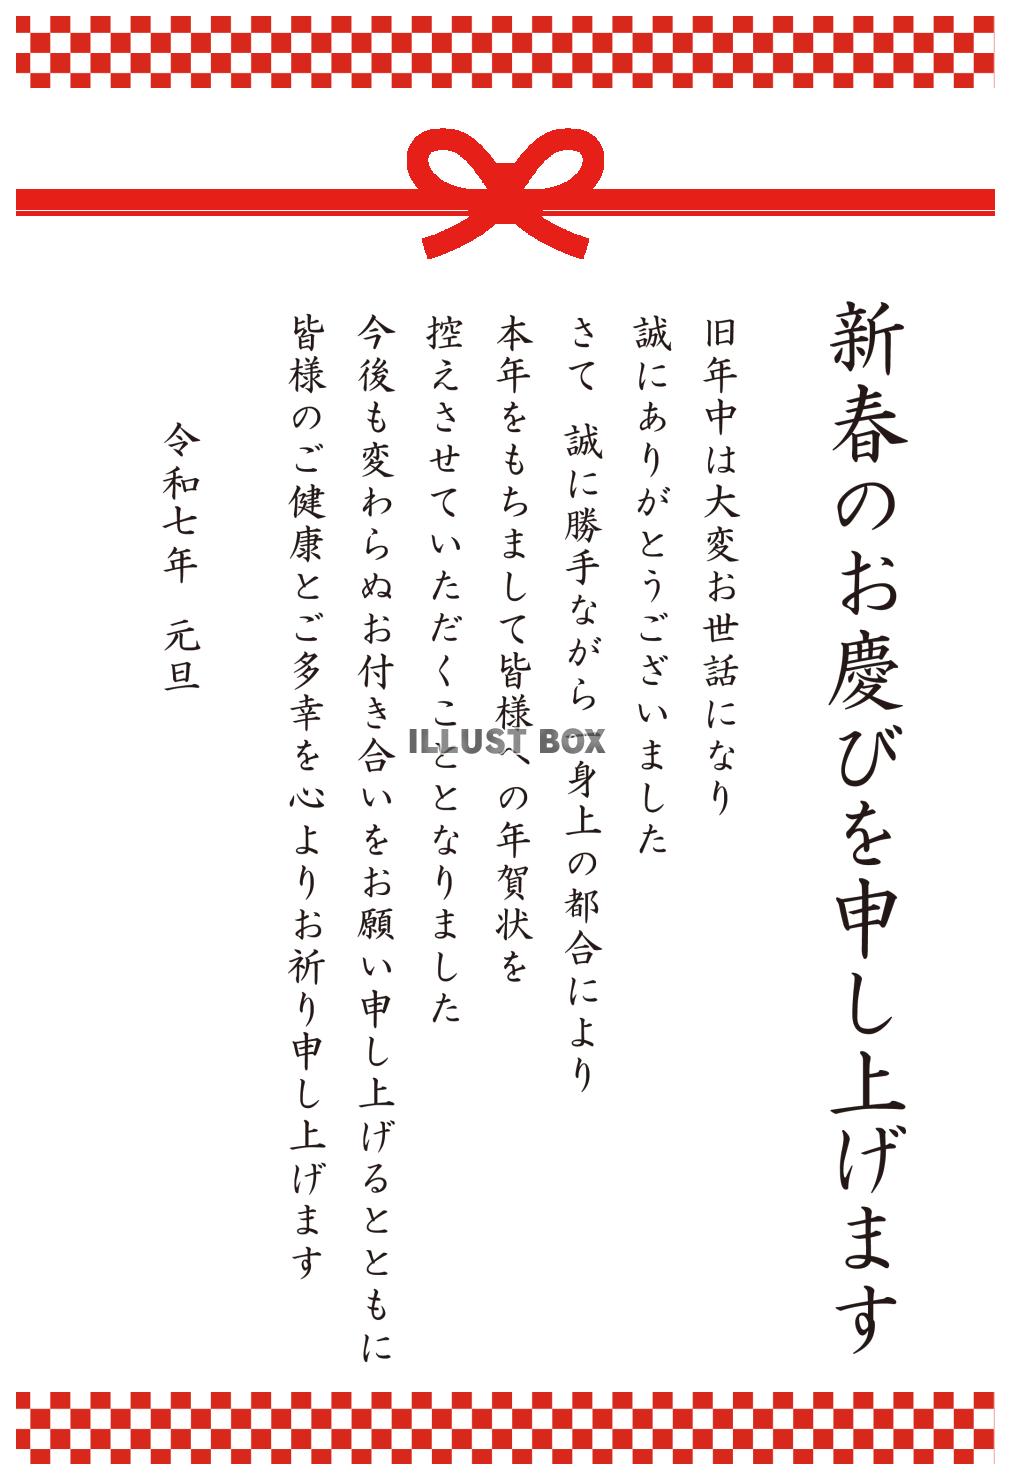 新春のお慶びを申し上げます
旧年中は大変お世話になり
誠にありがとうございました
さて　誠に勝手ながら一身上の都合により
本年をもちまして皆様への年賀状を
控えさせていただくこととなりました
今後も変わらぬお付き合いをお願い申し上げるとともに
皆様のご健康とご多幸を心よりお祈り申し上げます
令和七年　元旦
ILLUST BOX